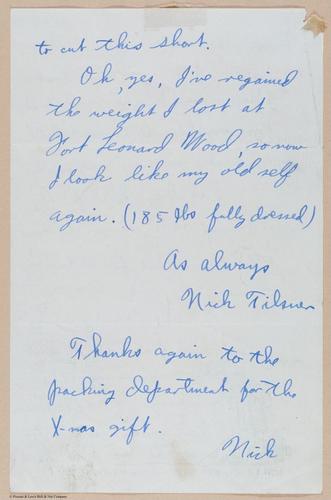 to cut this short.
Oh, yes, I've regained
the weight I lost at
Fort Leonard Wood, so now
I look like my old self
again. (185 lbs fully dressed)
As always
Nick Tilsner
Thanks again to the
packing department for the
X-mas gift.
Nick